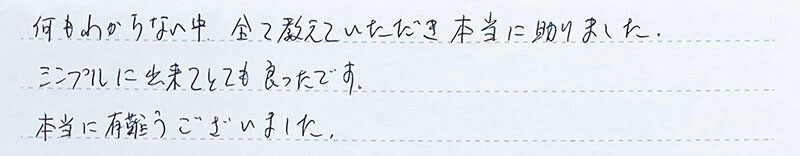 何もわからない中 全て教えていただき本当に助りました.
シンプルに出来てとても良ったです.
本当に有難うございました.